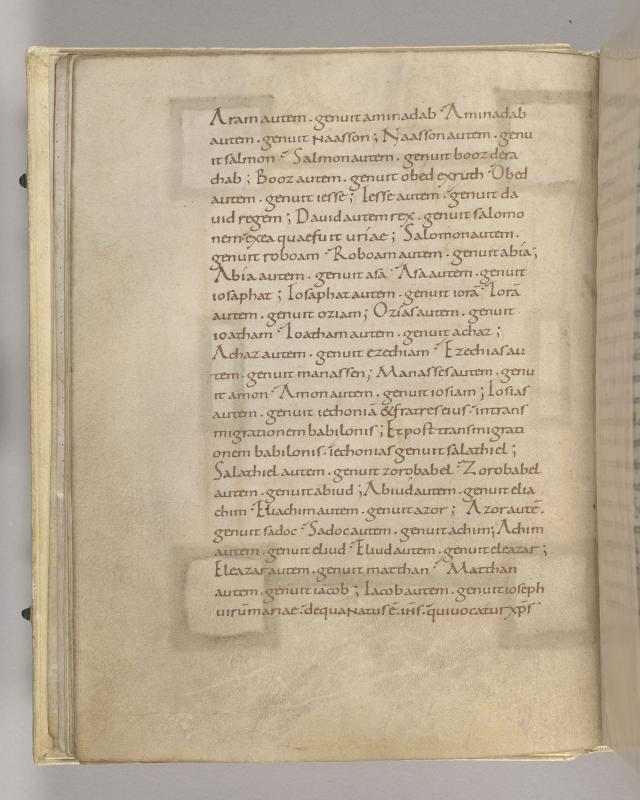 Aram autem . genuit aminadab · Aminadab
autem . genuit naasson ; Naasson autem . genu
it salmon · Salmon autem . genuit booz dera
chab ; Booz autem . genuit obed exruth · Obed
autem . genuit iesse ; Iesse autem . genuit da
uid regem ; Dauid autem rex . genuit salomo
nem exea quaefuit uriae ; Salomon autem .
genuit roboam · Roboam autem . genuit abia ;
Abia autem . genuit asa · Asa autem . genuit
iosaphat ; Iosaphat autem . genuit iorā · Iorā
autem . genuit oziam ; Ozias autem . genuit
ioatham · Ioatham autem . genuit achaz ;
Achaz autem . genuit ezechiam · Ezechias au
tem . genuit manassen ; Manasses autem . genu
it amon · Amon autem . genuit iosiam ; Iosias
autem . genuit iechoniā & fratres eius · intrans
migrationem babilonis ; Et post transmigrati
onem babilonis · iechonias genuit salathiel ;
Salathiel autem . genuit zorobabel · Zorobabel
autem . genuit abiud ; Abiud autem . genuit elia
chim · Eliachim autem . genuit azor ; Azor autē .
genuit sadoc · Sadoc autem . genuit achim ; Achim
autem . genuit eliud · Eliud autem . genuit eleazar ;
Eleazar autem . genuit matthan · Matthan
autem . genuit iacob ; Iacob autem . genuit ioseph
uirum mariae · dequa natus ē . ihs̄ . qui uocatur xp̄s